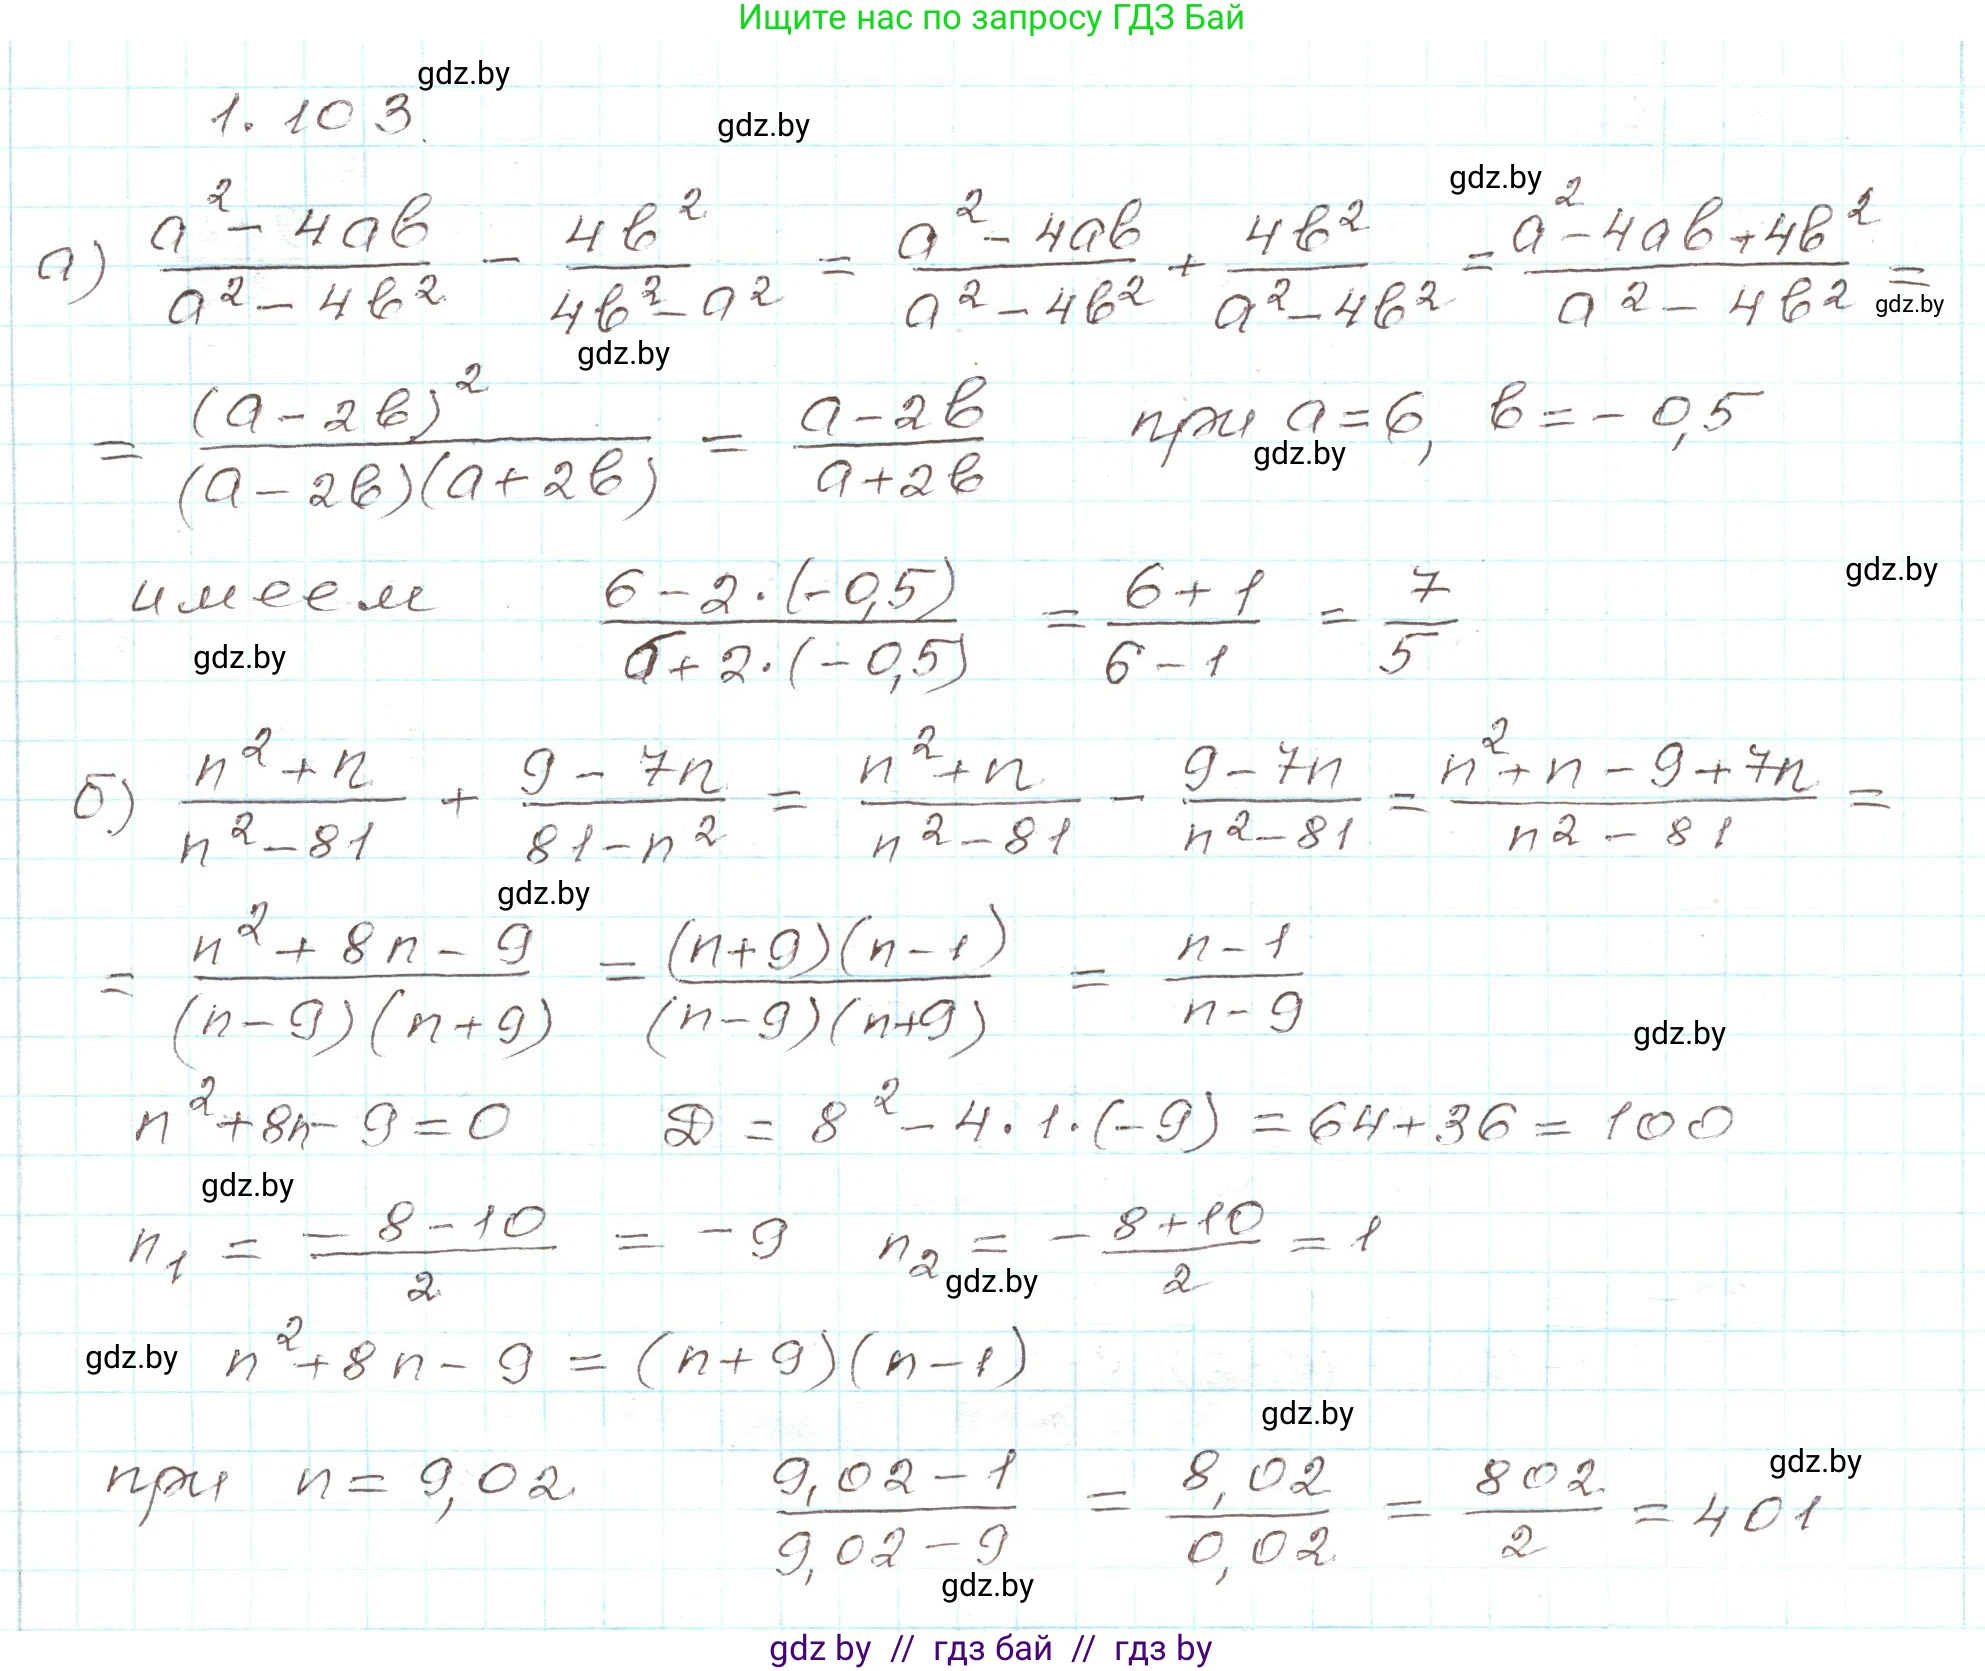 Ищите нас по запросу ГДЗ Бай
gdz.by
1.103.
gdz.by
gdz.by
а) (a² - 4ab)/(a² - 4b²) - 4b²/(4b² - a²) = (a² - 4ab)/(a² - 4b²) + 4b²/(a² - 4b²) = (a² - 4ab + 4b²)/(a² - 4b²) =
gdz.by
gdz.by
= (a - 2b)²/((a - 2b)(a + 2b)) = (a - 2b)/(a + 2b) при a = 6, b = - 0,5
gdz.by
gdz.by
имеем (6 - 2·(-0,5))/(6 + 2·(-0,5)) = (6 + 1)/(6 - 1) = 7/5
gdz.by
б) (n² + n)/(n² - 81) + (9 - 7n)/(81 - n²) = (n² + n)/(n² - 81) - (9 - 7n)/(n² - 81) = (n² + n - 9 + 7n)/(n² - 81) =
gdz.by
= (n² + 8n - 9)/((n - 9)(n + 9)) = ((n + 9)(n - 1))/((n - 9)(n + 9)) = (n - 1)/(n - 9)
gdz.by
n² + 8n - 9 = 0 D = 8² - 4·1·(-9) = 64 + 36 = 100
gdz.by
n₁ = (-8 - 10)/2 = -9 n₂ = -(8 + 10)/2 = 1
gdz.by
gdz.by
n² + 8n - 9 = (n + 9)(n - 1)
gdz.by
gdz.by
при n = 9,02 (9,02 - 1)/(9,02 - 9) = 8,02/0,02 = 802/2 = 401
gdz.by
gdz by // гдз бай // гдз by